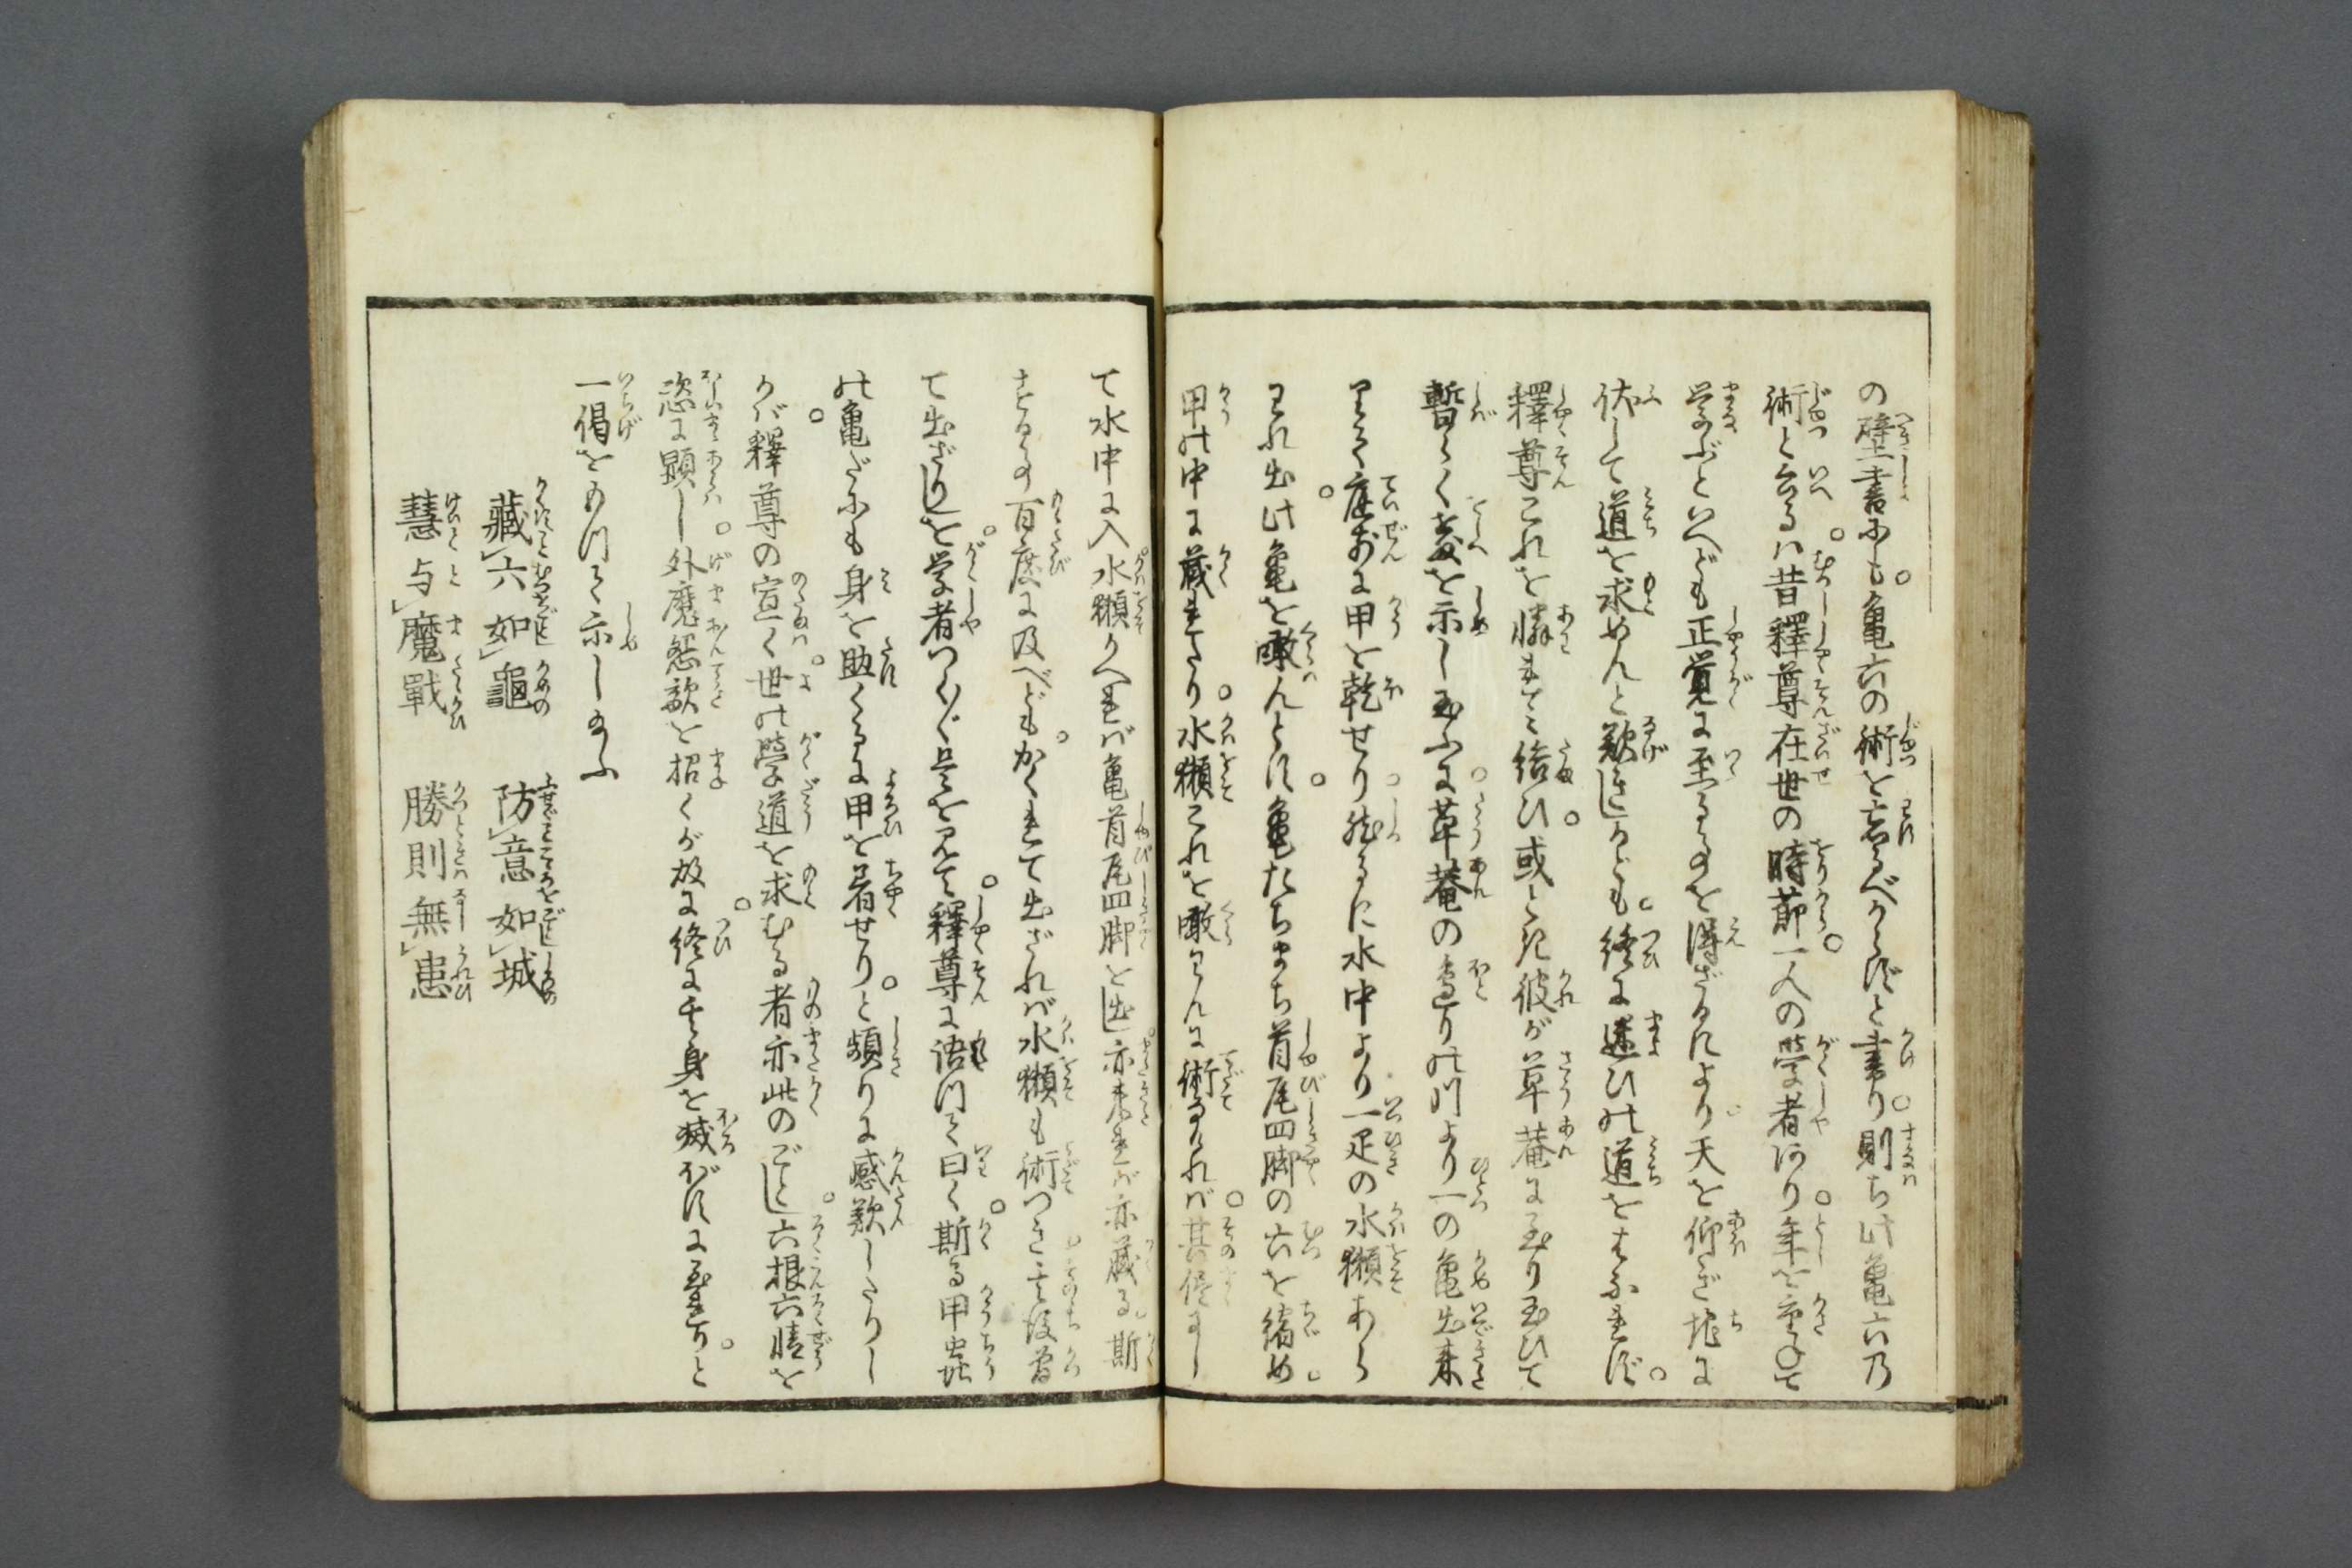 の壁書にも。亀六の術を忘るべからずと書り。則ち此亀六乃
術と云るハ。昔釋尊在世の時節。一人の学者あり。年を重ねて
学ぶといへども正覚に至ることを得ざるにより。天を仰ぎ地に
伏して道を求めんと歎しかども。終に迷ひの道をはなれず。
釋尊これを憐ませ給ひ。或とき彼が草菴に至り玉ひて
暫らく教を示し玉ふに。草菴の邊りの川より一の亀出来
りて。庭前に甲を乾せり。然るに水中より一疋の水獺あら
われ出。此亀を噉んとす。亀たちまち首尾四脚の六を縮め。
甲の中に蔵れたり。水獺これを噉らんに術なければ。其侭にし
て水中に入。水獺かへれば亀首尾四脚を出し。亦来れば亦蔵る。斯
することの百度に及べども。かくれて出ざれば水獺も術つき。其後曽
て出ざりしを。学者つらつら是を見て。釋尊に語つて曰く。斯る甲虫
の亀だにも身を助くるに甲を着せり。と頻りに感歎したりし
かば。釋尊の宣く。世の学道を求むる者亦此のごとし。六根六情を
恣に顕し。外魔怨敵を招くが故に。終に其身を滅ぼすに至れり。と
一偈をのべて示し玉ふ
藏六如龜　防意如城
慧与魔戰　勝則無患